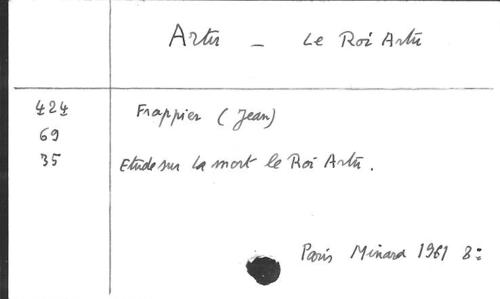 Artu – Le Roi Artu
424 Frappier (Jean)
69
35 Etude sur la mort le Roi Artu.
Paris Minard 1961 8: